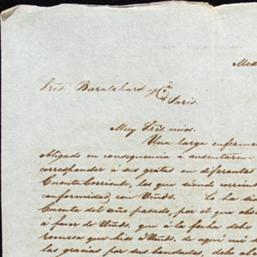 Med
Sres. Baratchard y Ca
Paris.
Muy Sres mios.
Una larga enferme
obligado en consequencia à ausentarm
corresponder à sus gratas en diferentes
Cuenta Corriente, los que siendo corrient
conformidad con Ustds. Lo ha sid
Cuenta del año pasado, por el que abs
à favor de Ustds, que à la fecha debe
remesa que hice à Ustds. de aqui
las gracias por sus bondades, debo